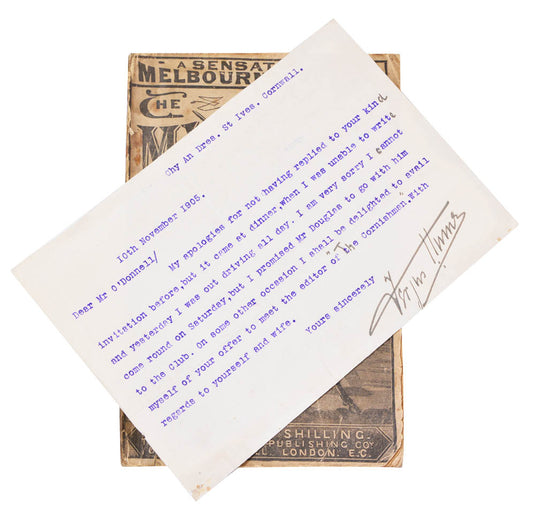 A SENSAT
MELBOURN
THE
Chy An Drea. St Ives. Cornwall.
10th November 1905.
Dear Mr O'Donnell/
My apologies for not having replied to your kind
invitation before,but it came at dinner,when I was unable to write
and yesterday I was out driving all day. I am very sorry I cannot
come round on Saturday,but I promised Mr Douglas to go with him
to the Club. On some other occasion I shall be delighted to avail
myself of your offer to meet the editor of "The Cornishman".With
regards to yourself and wife.
Yours sincerely
Fergus Hume
SHILLING.
PUBLISHING COY
LONDON. E.C.